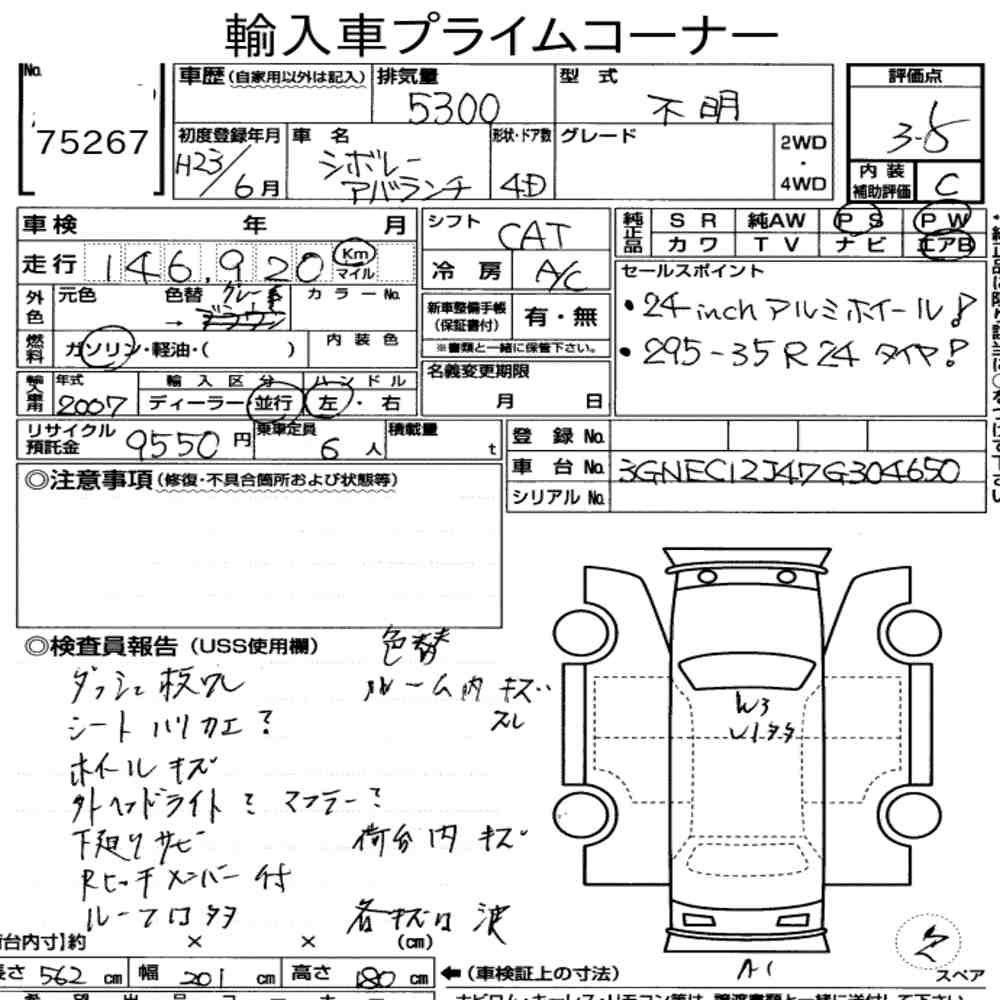 輸入車プライムコーナー
No.
75267
車歴(自家用以外は記入)
排気量
5300
型 式
不明
評価点
3.5
初度登録年月
H23/6月
車 名
シボレー
アバランチ
形状・ドア数
4D
グレード
2WD
・
4WD
内装
補助評価
C
車検 年 月
シフト
CAT
純正品
SR 純AW PS PW
カワ TV ナビ エアB
走行 146,920 Km マイル
冷房
A/C
セールスポイント
・24inch アルミホイール!
・295-35R24 タイヤ!
外色
元色 色替 グレー カラーNo.
→
新車整備手帳
(保証書付)
有・無
※書類と一緒に保管下さい。
燃料
ガソリン・軽油・( )
内装色
名義変更期限
月 日
年式
2007
輸入区分
ディーラー・並行
ハンドル
左・右
リサイクル
預託金
9550円
乗車定員
6人
積載量
t
登録No.
車台No.
3GNEC12J47G304650
シリアルNo.
◎注意事項(修復・不具合箇所および状態等)
◎検査員報告(USS使用欄)
色替
ダッシュ板ワレ
ルーム内キズ
スレ
シートハリカエ?
ホイールキズ
外ヘッドライト ? マフラー?
下廻りサビ
荷台内キズ
Rヒッチメンバー付
ルーフ
各キズ 凹 波
W3
A1
スペア
荷台内寸]約 × × (cm)
長さ 562 cm 幅 201 cm 高さ 180 cm
←(車検証上の寸法)